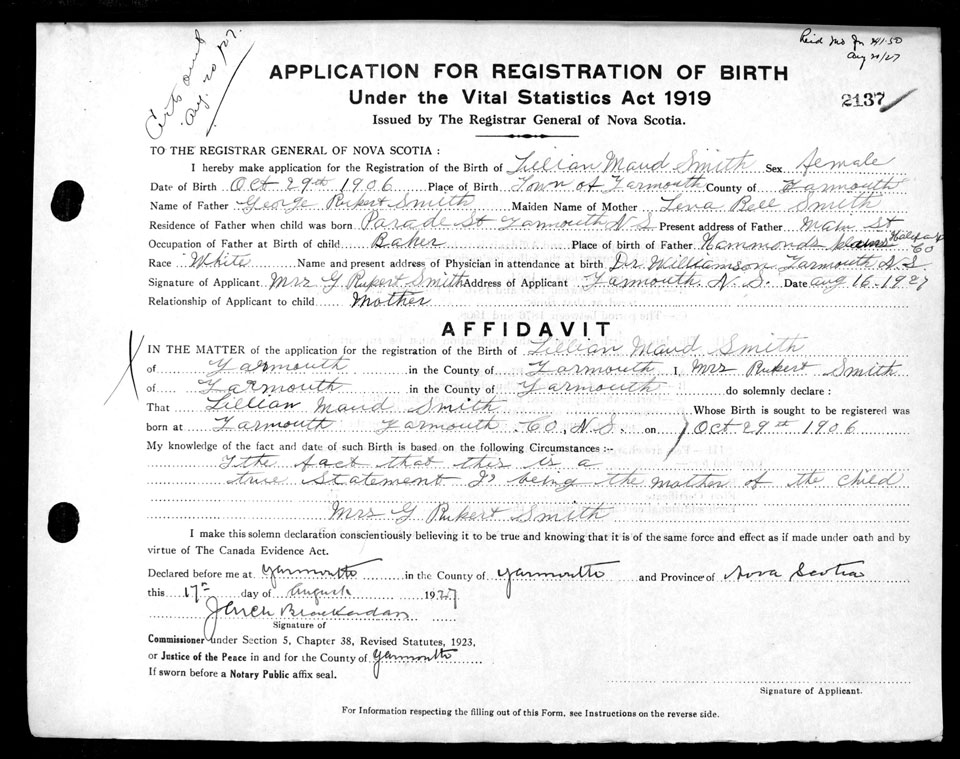 Certs out
Aug. 20/27.
Aug 20/27
APPLICATION FOR REGISTRATION OF BIRTH
Under the Vital Statistics Act 1919
2137
Issued by The Registrar General of Nova Scotia.
TO THE REGISTRAR GENERAL OF NOVA SCOTIA :
I hereby make application for the Registration of the Birth of Lillian Maud Smith Sex female
Date of Birth Oct 29th 1906 Place of Birth Town of Yarmouth County of Yarmouth
Name of Father George Rupert Smith Maiden Name of Mother Lena Bell Smith
Residence of Father when child was born Parade St Yarmouth N.S Present address of Father Main St
Occupation of Father at Birth of child Baker Place of birth of Father Hammonds plains Halifax Co
Race White Name and present address of Physician in attendance at birth Dr. Williamson Yarmouth N.S.
Signature of Applicant Mrs G Rupert Smith Address of Applicant Yarmouth N.S. Date Aug 16-1927
Relationship of Applicant to child Mother
AFFIDAVIT
IN THE MATTER of the application for the registration of the Birth of Lillian Maud Smith
of Yarmouth in the County of Yarmouth I, Mrs Rupert Smith
of Yarmouth in the County of Yarmouth do solemnly declare :
That Lillian Maud Smith Whose Birth is sought to be registered was
born at Yarmouth Yarmouth Co. N.S. on Oct 29th 1906
My knowledge of the fact and date of such Birth is based on the following Circumstances :-
the fact that this is a
true statement being the mother of the child
Mrs G Rupert Smith
I make this solemn declaration conscientiously believing it to be true and knowing that it is of the same force and effect as if made under oath and by
virtue of The Canada Evidence Act.
Declared before me at Yarmouth in the County of Yarmouth and Province of Nova Scotia
this 17th day of August 1927
Signature of
Commissioner under Section 5, Chapter 38, Revised Statutes, 1923,
or Justice of the Peace in and for the County of Yarmouth
If sworn before a Notary Public affix seal.
Signature of Applicant.
For Information respecting the filling out of this Form, see Instructions on the reverse side.